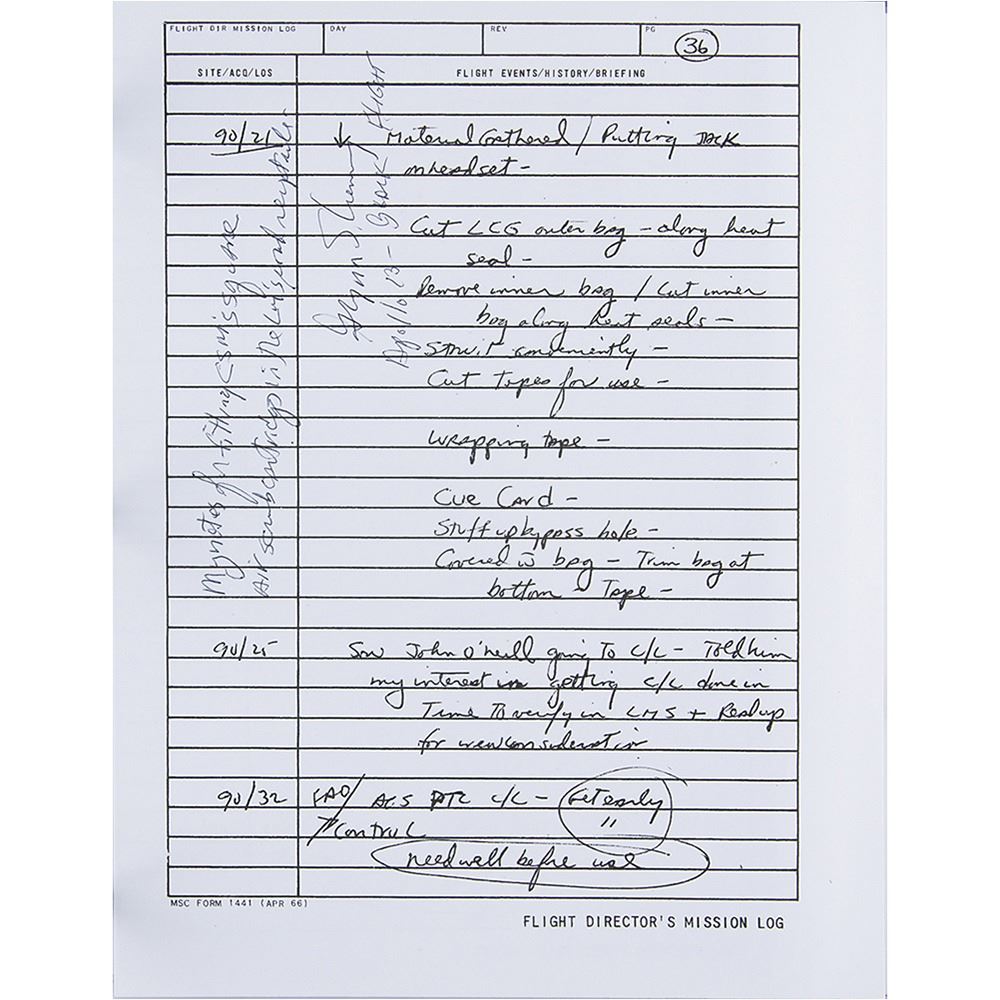 FLIGHT DIR MISSION LOG DAY REV PG 36
SITE/ACQ/LOS FLIGHT EVENTS/HISTORY/BRIEFING
90/21 ↓ Material Gathered / Putting Jack
on headset -
Cut LCG outer bag - along heat
seal -
Remove inner bag / Cut inner
bag along heat seals -
Stow it conveniently -
Cut Tapes for use -
Wrapping tape -
Cue Card -
Stuff up bypass hole -
Covered w bag - Trim bag at
bottom - Tape -
90/25 Saw John O'neill going To C/L - Told him
my interest in getting C/L done in
Time To verify in LMS + Readup
for crew consideration
90/32 FAO/ ACS PTC C/L - Get early
"
Control
need well before use
My notes on fitting CSM's square
Air scrub cartridge in the LM's round receptacle
Glynn S. Lunney
Apollo 13 - BLACK FLIGHT
MSC FORM 1441 (APR 66)
FLIGHT DIRECTOR'S MISSION LOG